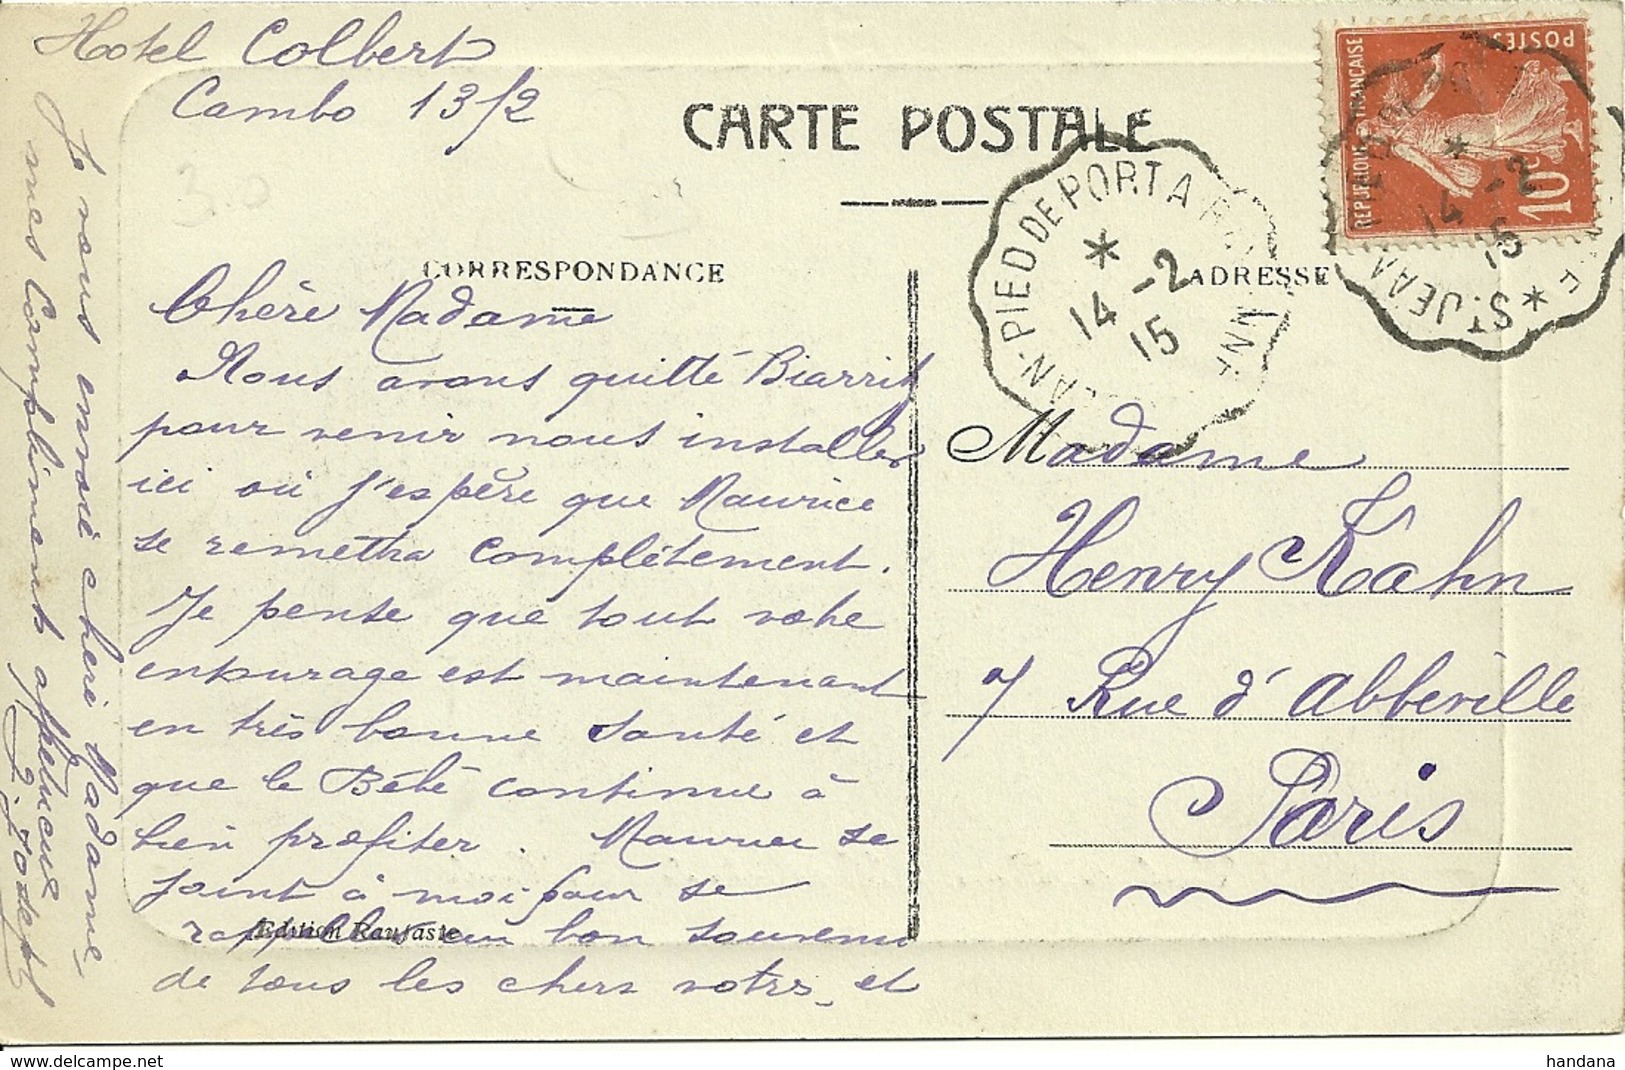 Hotel Colbert
Cambo 13/2
CARTE POSTALE
CORRESPONDANCE
ADRESSE
Chère Madame
Nous avons quitté Biarritz
pour venir nous installer
ici où j'espère que Maurice
se remettra complètement.
Je pense que tout votre
entourage est maintenant
en très bonne santé et
que le Bébé continue à
bien profiter. Maurice se
joint à moi pour se
rappeler au bon souvenir
de tous les chers votres, et
Je vous envoie chère Madame
mes Compliments affectueux
Edition Raufaste
Madame
Henry Kahn
7 Rue d'Abbeville
Paris
JEAN-PIED DE PORT A BAYONNE
*
14 -2
15
REPUBLIQUE FRANCAISE
POSTES
10c
14 -2
15
* ST JEAN
www.delcampe.net
handana